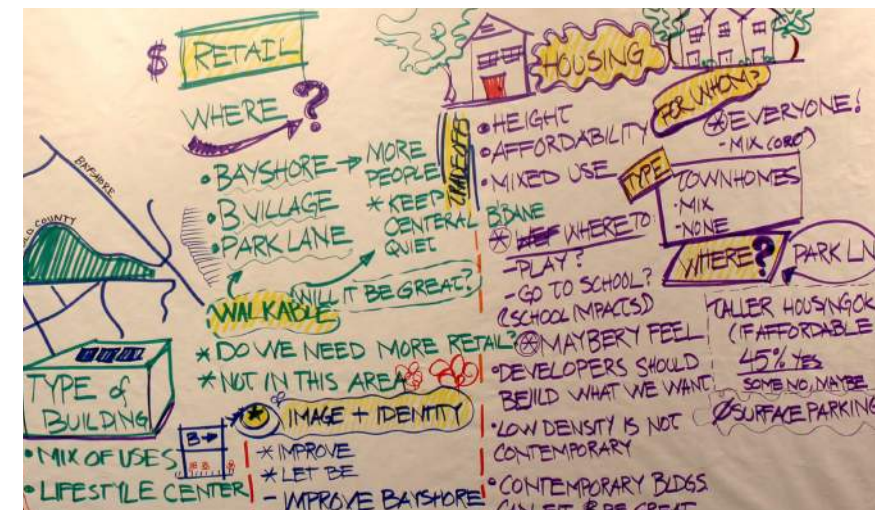 $ RETAIL
WHERE ?
• BAYSHORE → MORE PEOPLE
• B VILLAGE
• PARK LANE
* KEEP
CENTERAL
QUIET
WALKABLE
WILL IT BE GREAT?
* DO WE NEED MORE RETAIL?
* NOT IN THIS AREA
BAYSHORE
OLD COUNTY
TYPE of
BUILDING
• MIX OF USES
• LIFESTYLE CENTER
B→
IMAGE + IDENTITY
* IMPROVE
* LET BE
- IMPROVE BAYSHORE
TRADEOFFS
HOUSING
• HEIGHT
• AFFORDABILITY
• MIXED USE
B'BANE
* WHERE TO:
- PLAY?
- GO TO SCHOOL?
(SCHOOL IMPACTS)
* MAYBERY FEEL
• DEVELOPERS SHOULD
BEJILD WHAT WE WANT
• LOW DENSITY IS NOT
CONTEMPORARY
• CONTEMPORARY BLDGS
CAN FIT & BE GREAT
FOR WHOM?
* EVERYONE!
- MIX (ORO)
TYPE
TOWNHOMES
• MIX
- NONE
WHERE?
PARK LN
TALLER HOUSING OK
(IF AFFORDABLE
45% YES
SOME NO, MAYBE
Ø SURFACE PARKING